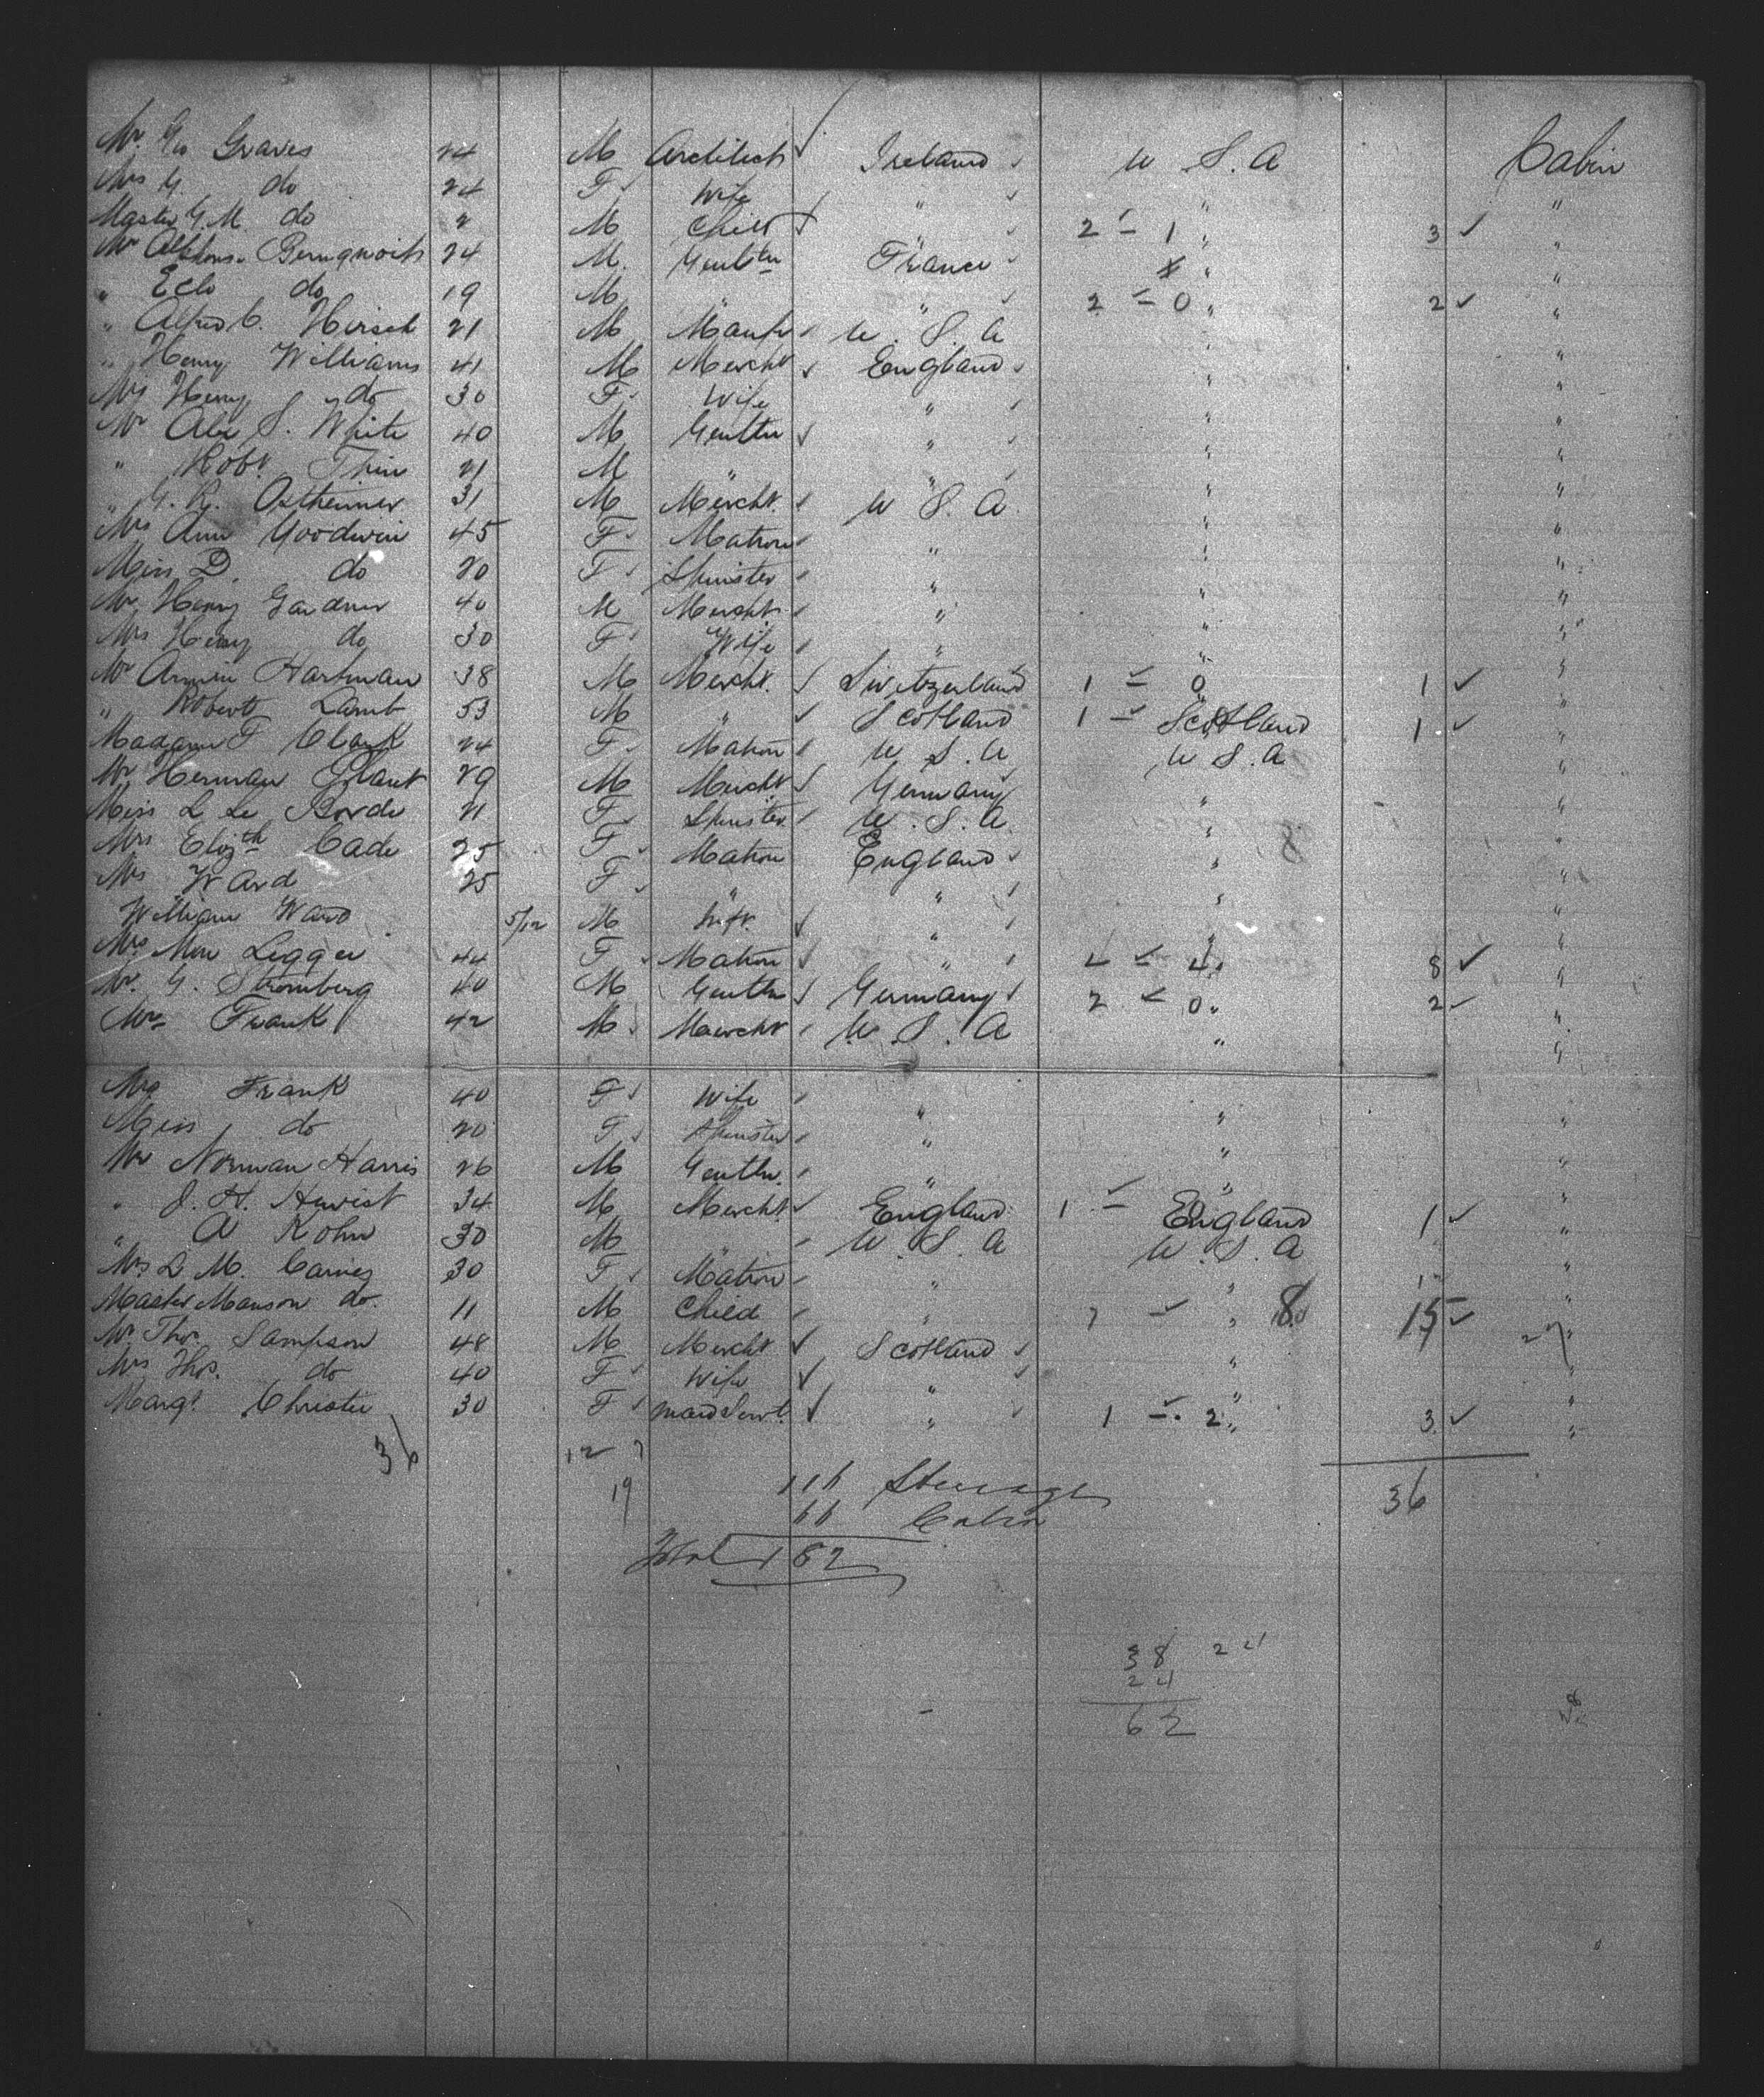 Mr. Geo Graves 24 M Architect Ireland U S. A Cabin
Mrs G. do 24 F Wife " " "
Master G. M do 2 M Child " 2 - 1 " 3 "
Mr Alphons. 24 M. Gentln France " "
" do 19 M " " 2 - 0 " 2 "
" Alfred C. Hirsch 21 M Manfr U. S. A " "
" Henry Williams 41 M Mercht England " "
Mrs Henry do 30 F Wife " " "
Mr Alex S. White 40 M Gentln " " "
" Robt. Thin 21 M " " " "
" G. R. Ortheimer 31 M Mercht. U S. A. " "
Mrs Ann Goodwin 45 F Matron " " "
Miss D. do 20 F Spinster " " "
Mr Henry Gardner 40 M Mercht. " " "
Mrs Henry do 30 F Wife " " "
Mr Armin Hartman 38 M Mercht. Switzerland 1 - 0 " 1 "
" Robert Lamb 53 M " Scotland 1 - Scotland 1 "
Madame F Clark 24 F Matron U S. A U S. A "
Mr Herman 29 M Mercht Germany " "
Miss L Le Borde 21 F Spinster U. S. A. " "
Mrs Elizth Cade 25 F Matron England " 8 "
Mrs Ward 25 F " " " "
William Ward 5/12 M Inft. " " "
Mrs Legger 44 F Matron " 4 - 4 " 8 "
Mr. G. Stromberg 40 M Gentln Germany 2 - 0 " 2 "
Mr Frank 42 M Mercht U. S. A " "
Mrs Frank 40 F Wife " " "
Miss do 20 F Spinster " " "
Mr Norman Harris 26 M Gentln. " " "
" J. H. 34 M Mercht. England 1 - England 1 "
" A Kohn 30 M " U. S. A U. S. A "
Mrs L M. 30 F Matron " " "
Master Manson do. 11 M Child " 7 - " 8 15 "
Mr. Thos. Sampson 48 M Mercht Scotland " "
Mrs Thos. do 40 F Wife " " "
Margt. Christie 30 F maid Servt. " 1 - 2 " 3 "
36 12 7
19 116 Steerage 36
66 Cabin
Total 182
38 24
24
62